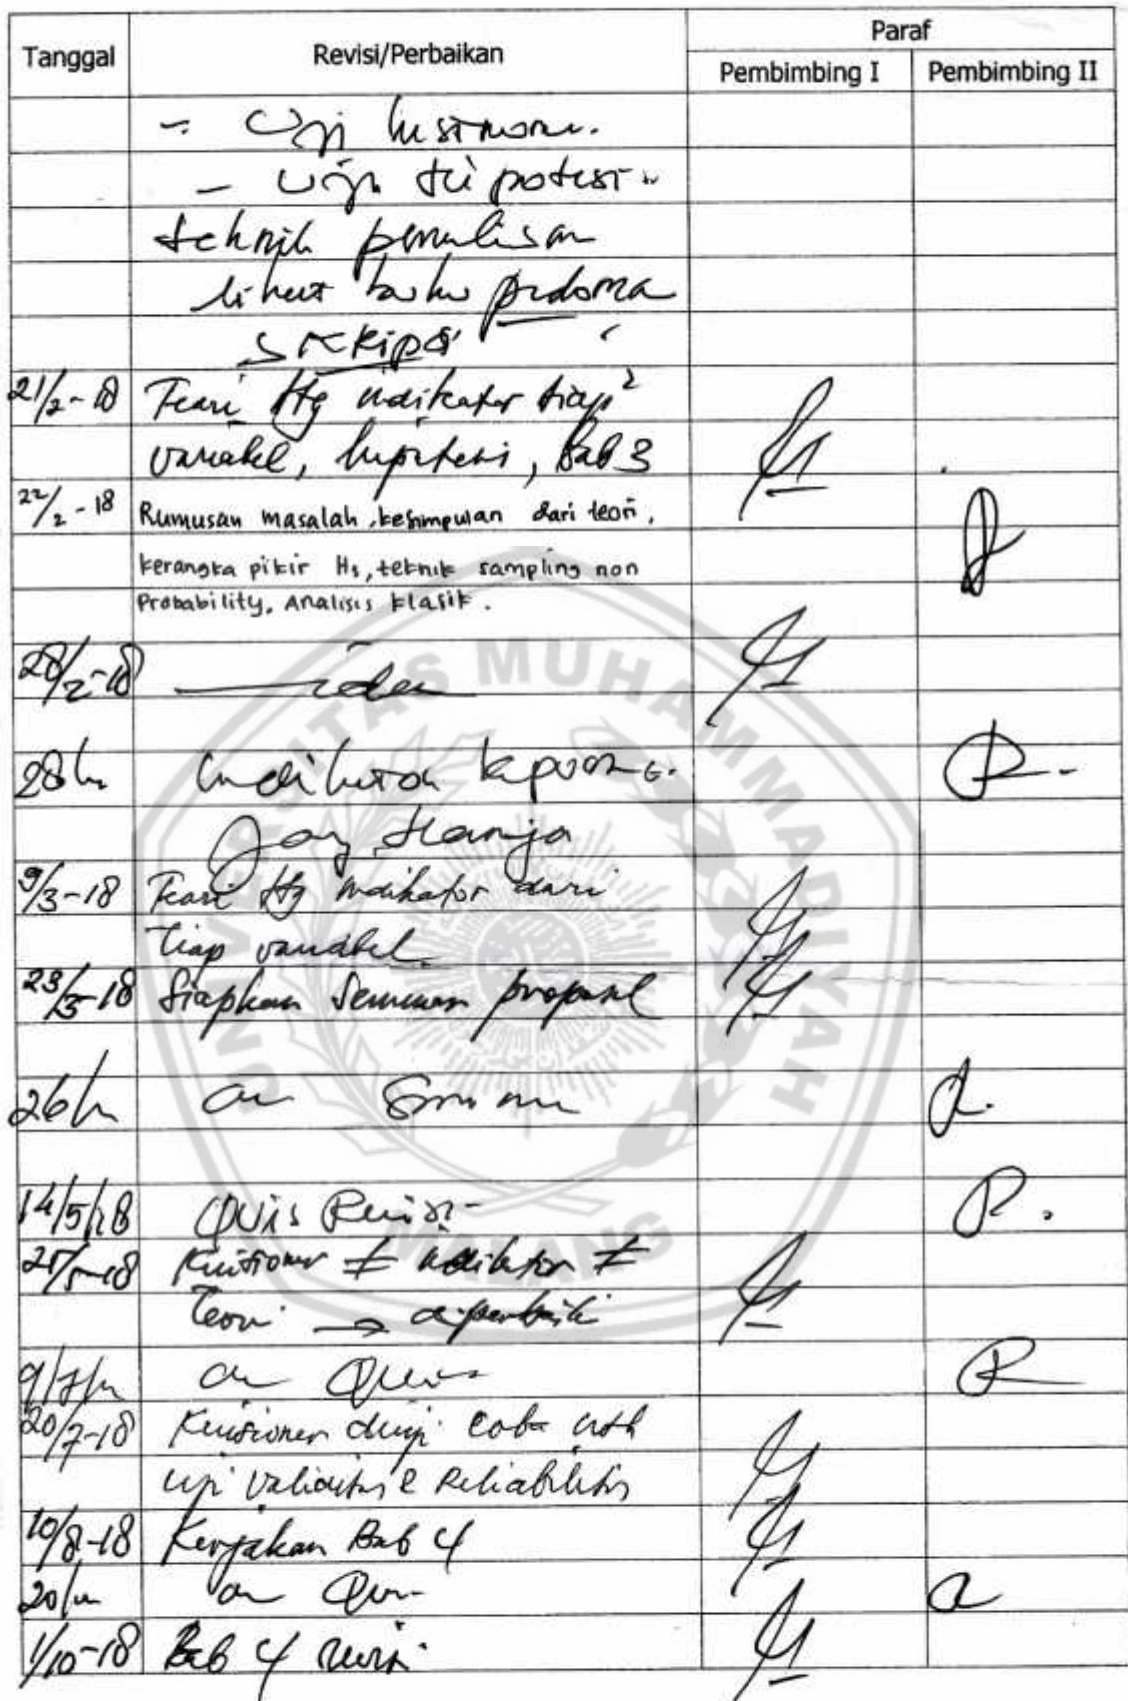 Tanggal Revisi/Perbaikan Paraf
Pembimbing I Pembimbing II
- Uji
- Uji Hipotesi
teknik penulisan
lihat buku pedoma
skripsi
21/2-18 Teori ttg indikator tiap²
variabel, hipotesis, Bab 3
22/2-18 Rumusan masalah, kesimpulan dari teori,
kerangka pikir H₅, teknik sampling non
Probability, Analisis klasik.
28/2-18 idem
28/
indikator
9/3-18 Teori ttg indikator dari
tiap variabel
23/3-18 Siapkan seminar proposal
26/
14/5/18 Quis Revisi
25/5-18 Kuisioner ≠ indikator ≠
Teori → diperbaiki
9/7/
20/7-18 Kuisioner diuji coba utk
uji validitas & Reliabilitas
10/8-18 Kerjakan Bab 4
20/
1/10-18 Bab 4 revisi
UNIVERSITAS MUHAMMADIYAH
MALANG